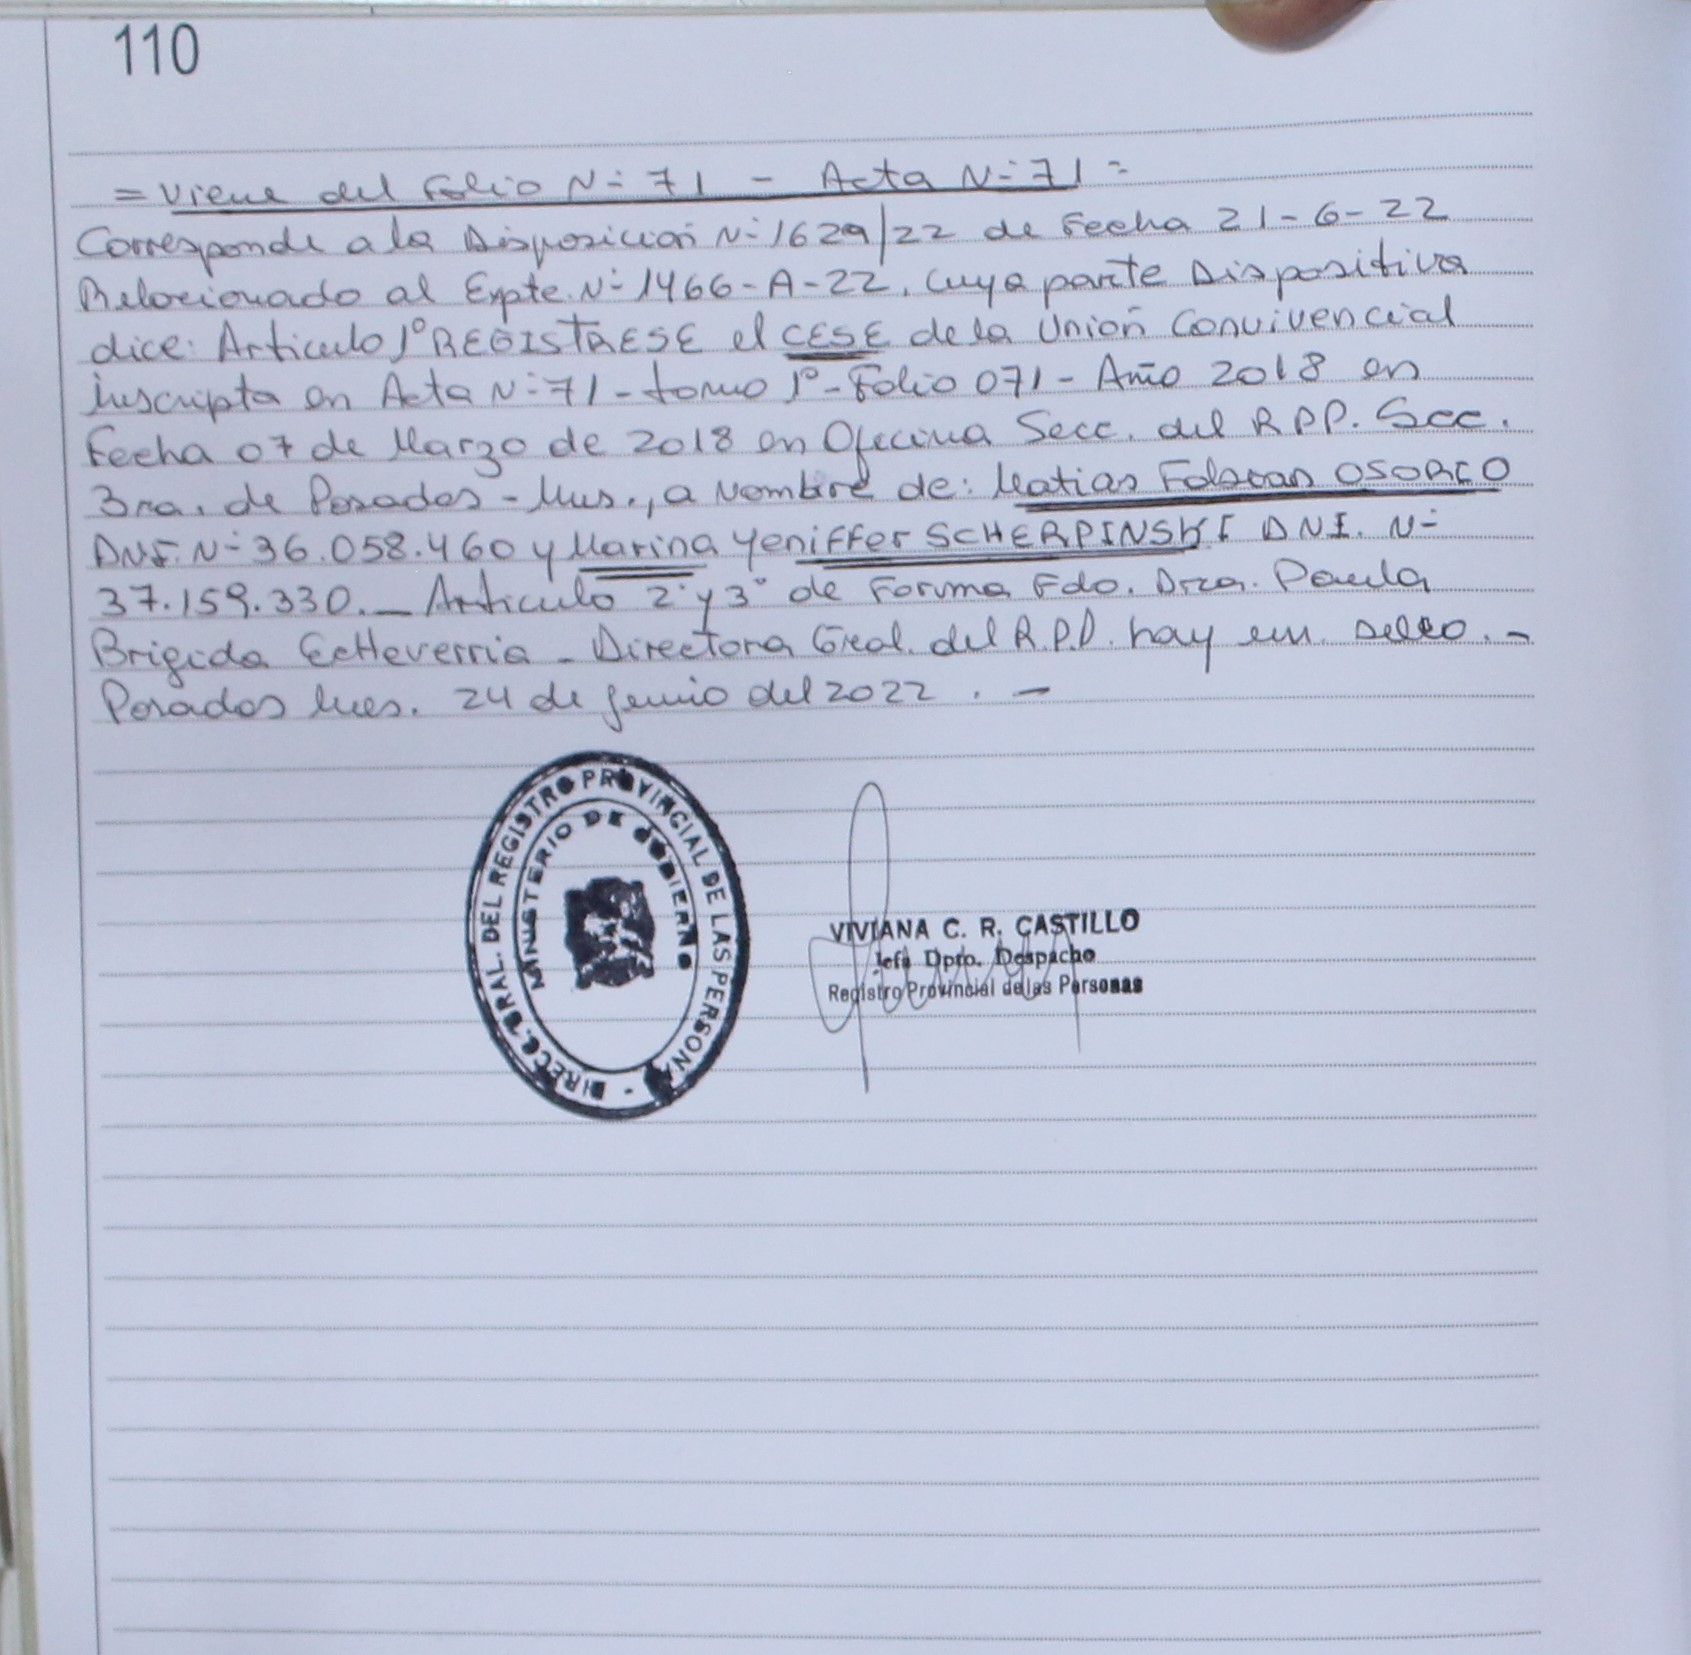 110
= Viene del Folio N= 71 - Acta N= 71 =
Corresponde a la Disposición N= 1629/22 de Fecha 21-6-22
Relacionado al Expte. N= 1466-A-22, cuya parte Dispositiva
dice: Articulo 1º REGISTRESE el CESE de la Unión Convivencial
inscripta en Acta N= 71 - tomo 1º - Folio 071 - Año 2018 en
Fecha 07 de Marzo de 2018 en Oficina Secc. del RPP. Scc.
3ra. de Posadas - Mns., a Nombre de: Matias OSORIO
DNI. N= 36.058.460 y Marina Yeniffer SCHERPINSKI DNI. N=
37.159.330. _ Articulo 2º y 3º de Forma Fdo. Dra. Paula
Brigida Echeverria - Directora Gral. del R.P.P. hay un sello. -
Posadas Mns. 24 de junio del 2022 . -
DIRECC. GRAL. DEL REGISTRO PROVINCIAL DE LAS PERSONAS -
MINISTERIO DE GOBIERNO
VIVIANA C. R. CASTILLO
Jefa Dpto. Despacho
Registro Provincial de las Personas